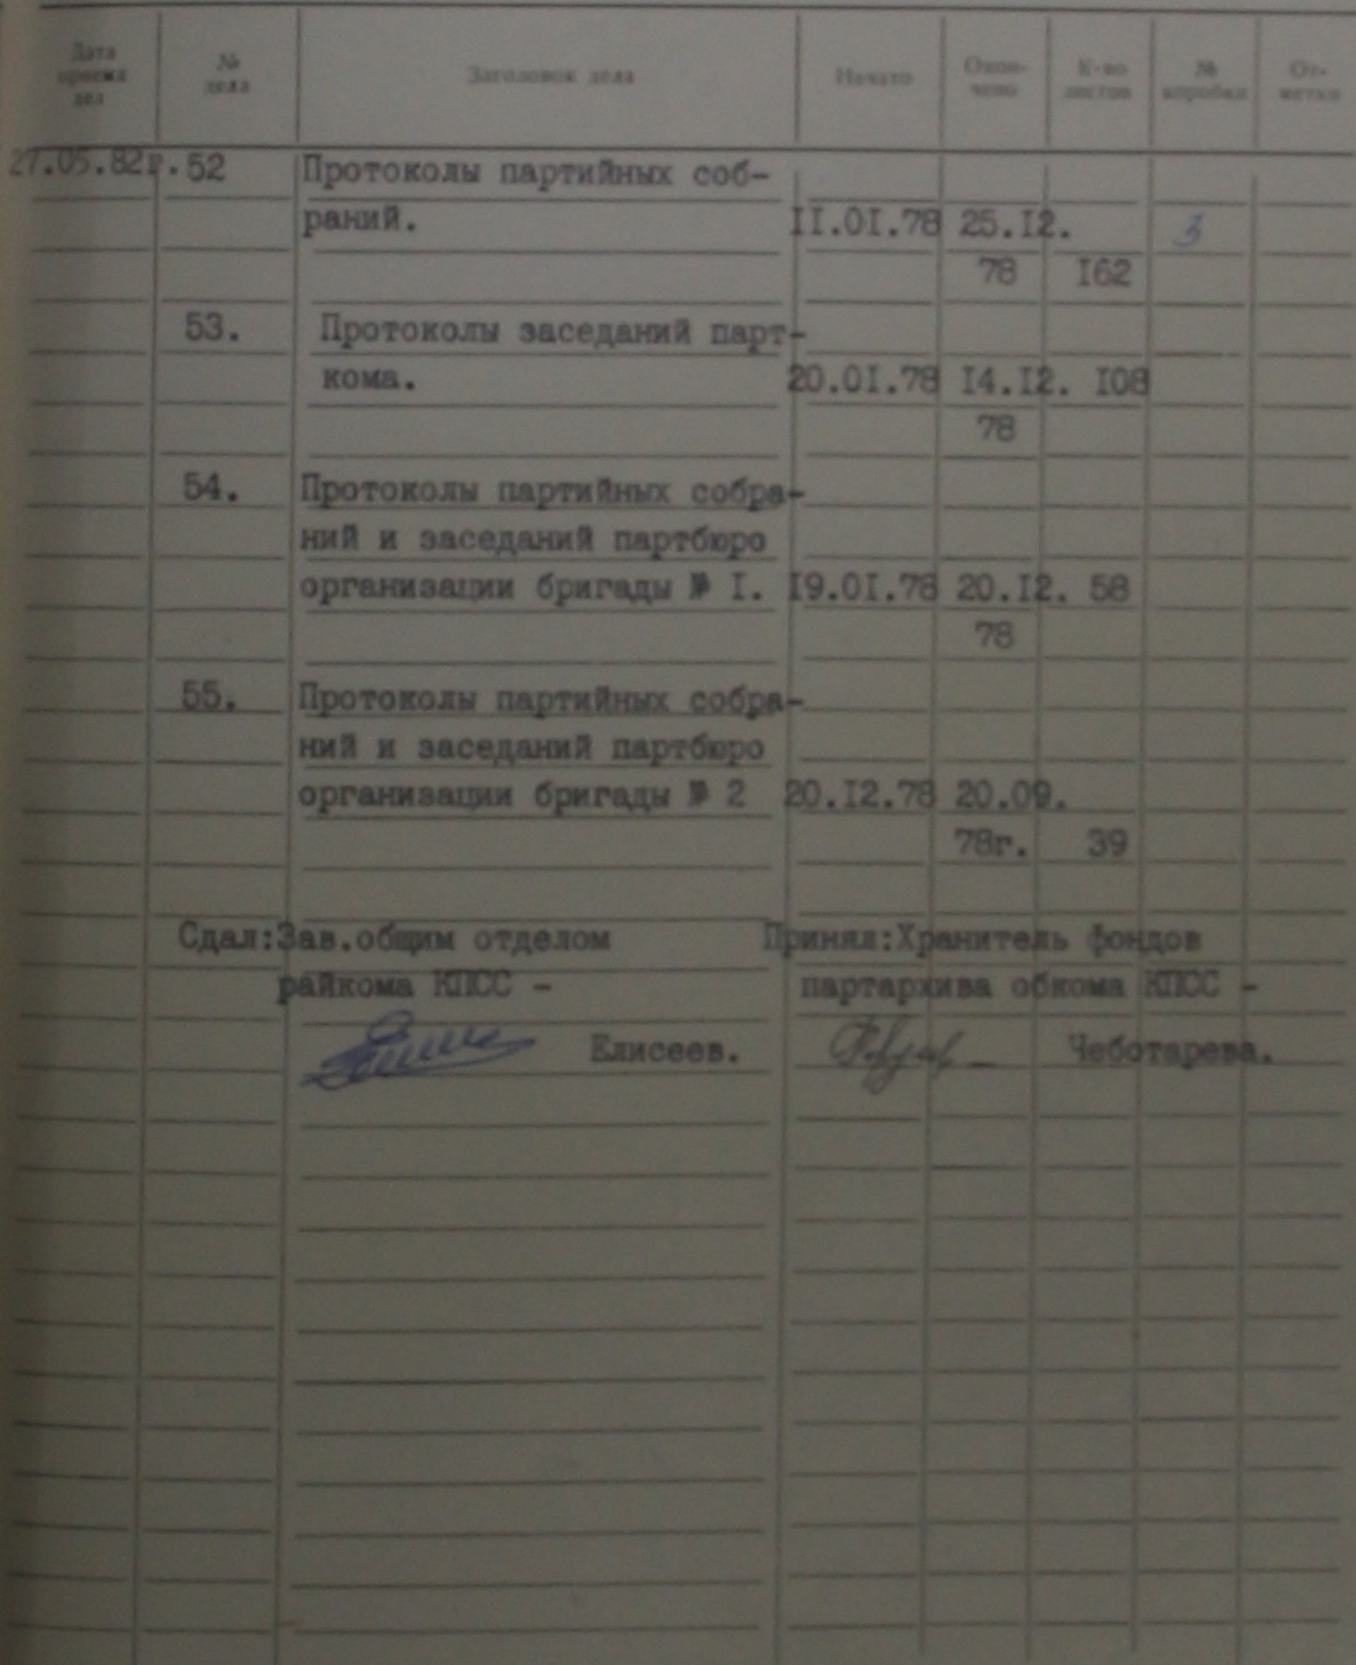 Дата приема дел № дела Заголовок дела Начато Окон-чено К-во листов № коробки От-метки
27.05.82г. 52 Протоколы партийных соб-
раний. II.0I.78 25.I2. 3
78 I62
53. Протоколы заседаний парт-
кома. 20.0I.78 I4.I2. I08
78
54. Протоколы партийных собра-
ний и заседаний партбюро
организации бригады № I. I9.0I.78 20.I2. 58
78
55. Протоколы партийных собра-
ний и заседаний партбюро
организации бригады № 2 20.I2.78 20.09.
78г. 39
Сдал:Зав.общим отделом Принял:Хранитель фондов
райкома КПСС - партархива обкома КПСС -
Елисеев. Чеботарева.